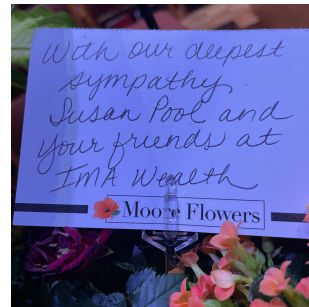 With our deepest
sympathy.
Susan Pool and
your friends at
IMA Wealth
Moore Flowers